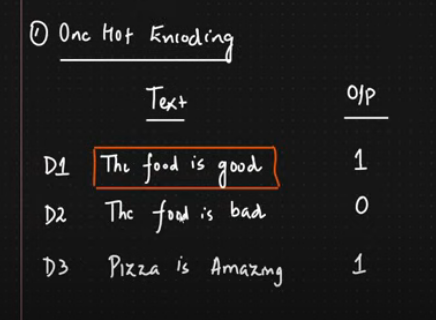 ① One Hot Encoding
Text O/P
D1 The food is good 1
D2 The food is bad 0
D3 Pizza is Amazing 1